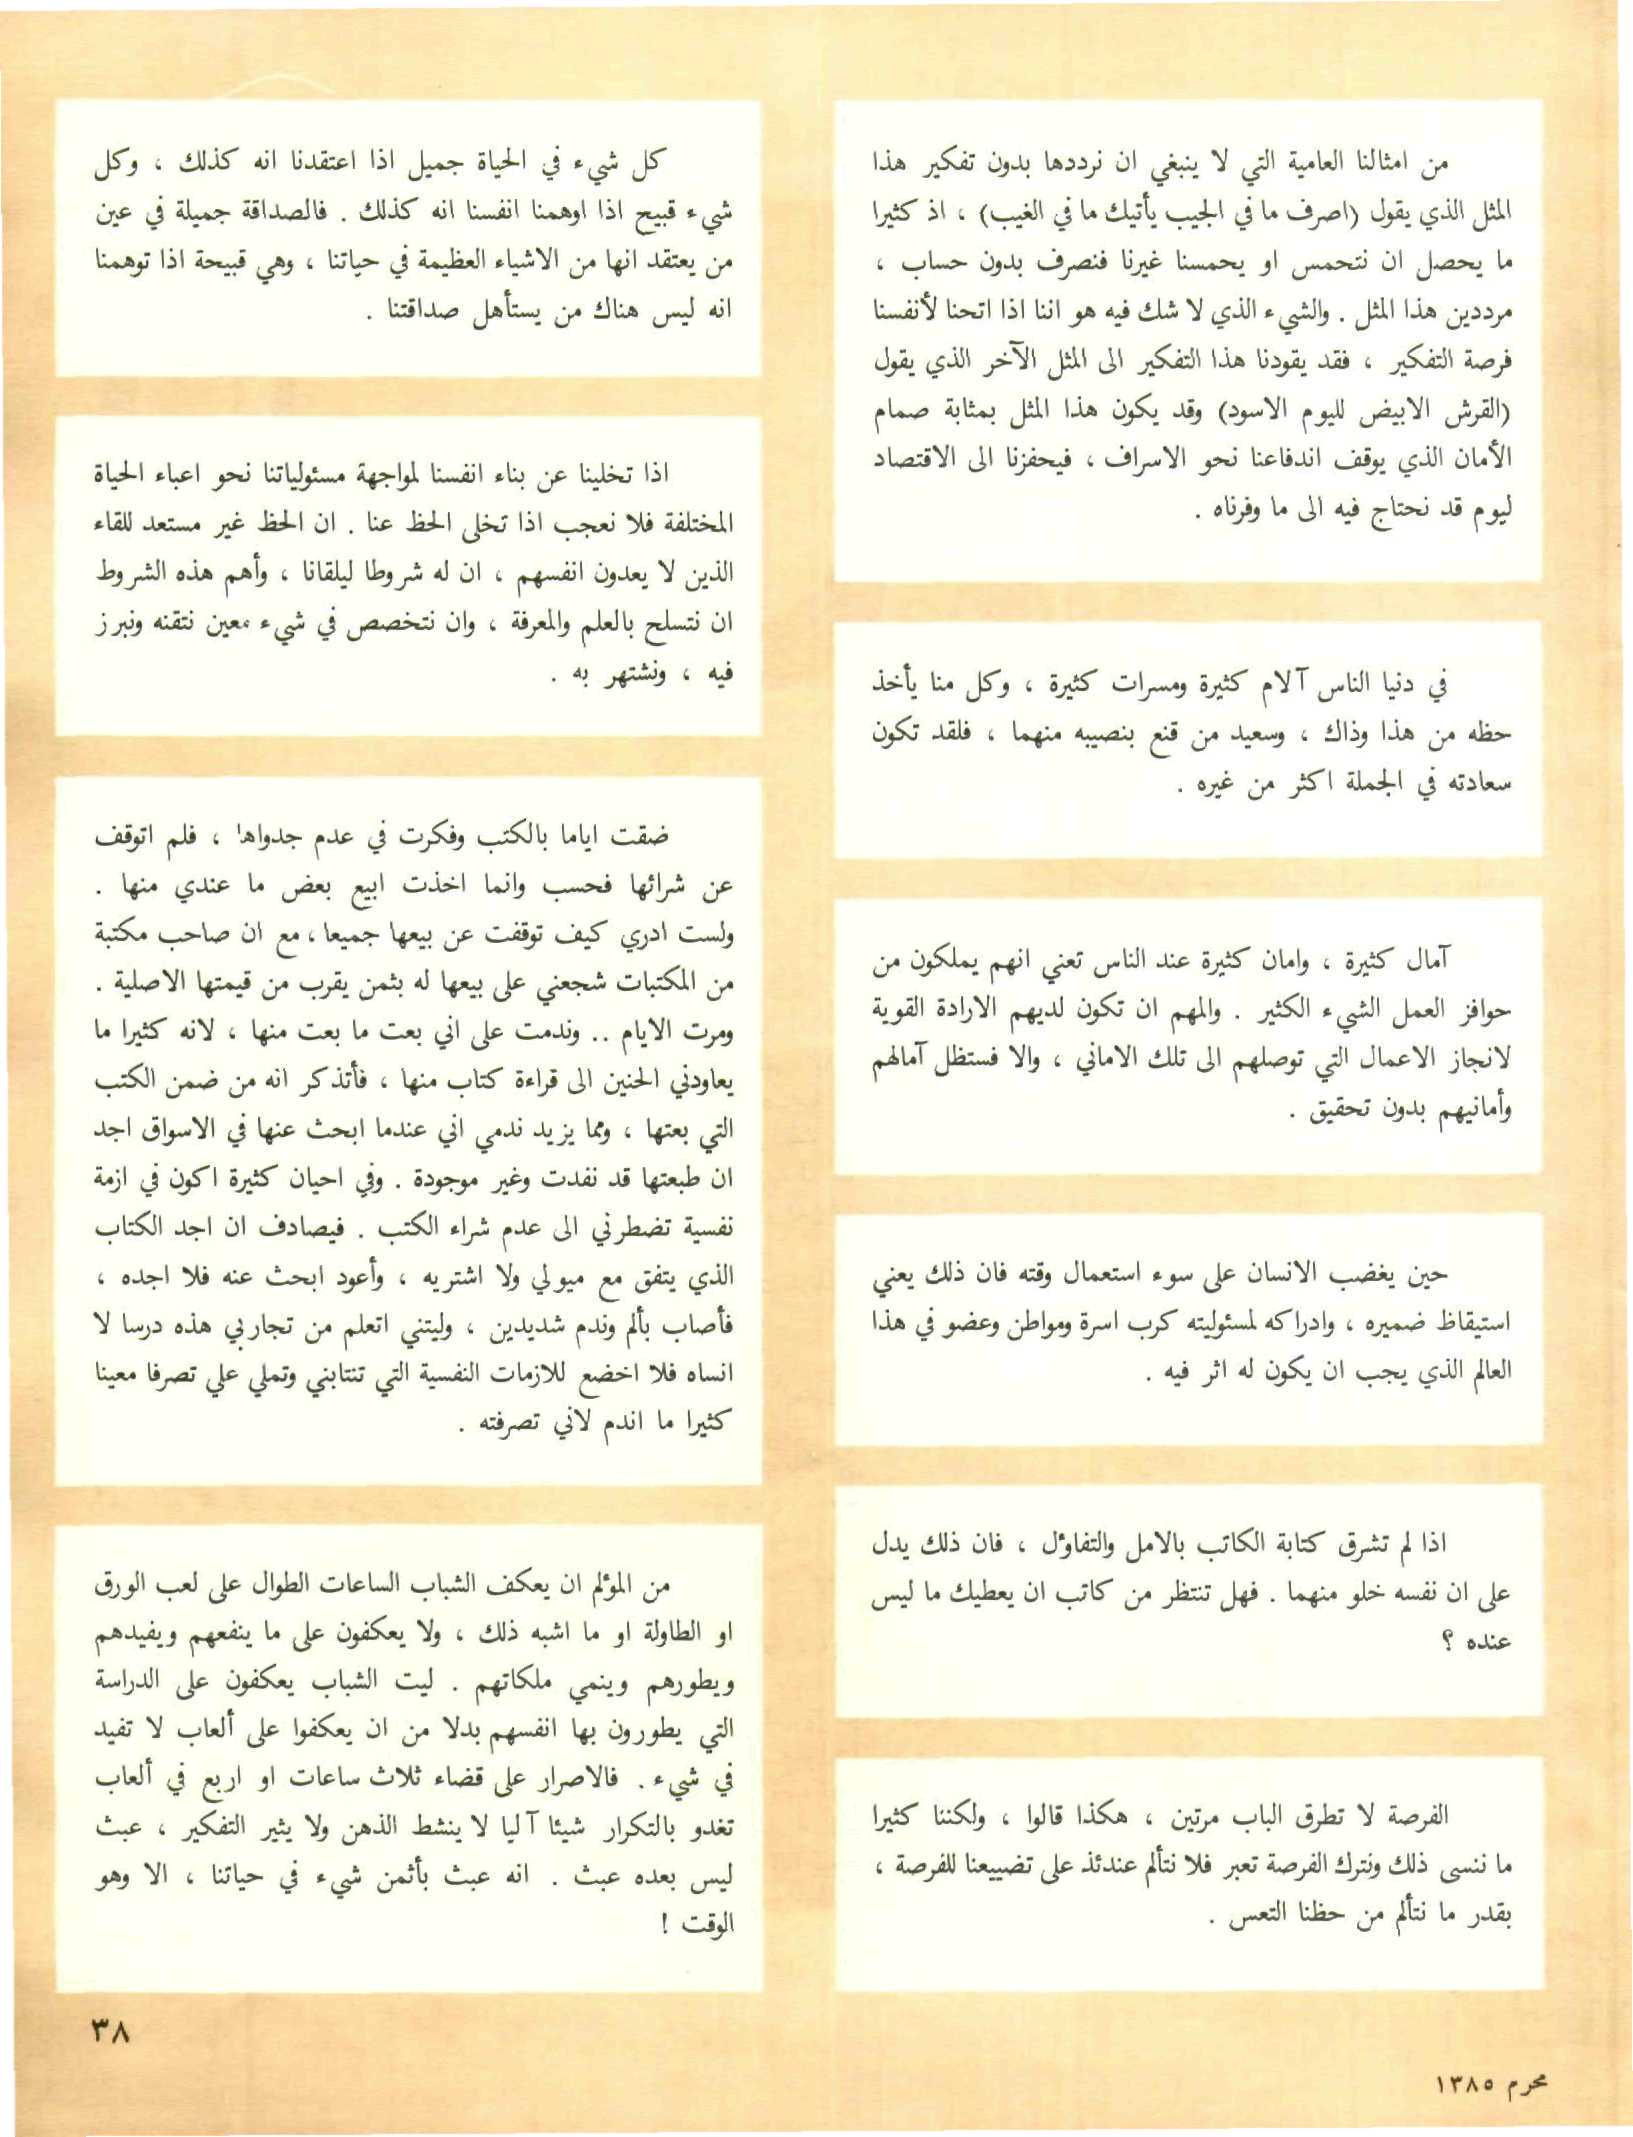 من امثالنا العامية التي لا ينبغي ان نرددها بدون تفكير هذا
المثل الذي يقول (اصرف ما في الجيب يأتيك ما في الغيب) ، اذ كثيرا
ما يحصل ان نتحمس او يحمسنا غيرنا فنصرف بدون حساب ،
مرددين هذا المثل . والشيء الذي لا شك فيه هو اننا اذا اتحنا لأنفسنا
فرصة التفكير ، فقد يقودنا هذا التفكير الى المثل الآخر الذي يقول
(القرش الابيض لليوم الاسود) وقد يكون هذا المثل بمثابة صمام
الأمان الذي يوقف اندفاعنا نحو الاسراف ، فيحفزنا الى الاقتصاد
ليوم قد نحتاج فيه الى ما وفرناه .
في دنيا الناس آلام كثيرة ومسرات كثيرة ، وكل منا يأخذ
حظه من هذا وذاك ، وسعيد من قنع بنصيبه منهما ، فلقد تكون
سعادته في الجملة اكثر من غيره .
آمال كثيرة ، وامان كثيرة عند الناس تعني انهم يملكون من
حوافز العمل الشيء الكثير . والمهم ان تكون لديهم الارادة القوية
لانجاز الاعمال التي توصلهم الى تلك الاماني ، والا فستظل آمالهم
وأمانيهم بدون تحقيق .
حين يغضب الانسان على سوء استعمال وقته فان ذلك يعني
استيقاظ ضميره ، وادراكه لمسئوليته كرب اسرة ومواطن وعضو في هذا
العالم الذي يجب ان يكون له اثر فيه .
اذا لم تشرق كتابة الكاتب بالامل والتفاؤل ، فان ذلك يدل
على ان نفسه خلو منهما . فهل تنتظر من كاتب ان يعطيك ما ليس
عنده ؟
الفرصة لا تطرق الباب مرتين ، هكذا قالوا ، ولكننا كثيرا
ما ننسى ذلك ونترك الفرصة تعبر فلا نتألم عندئذ على تضييعنا للفرصة ،
بقدر ما نتألم من حظنا التعس .
كل شيء في الحياة جميل اذا اعتقدنا انه كذلك ، وكل
شيء قبيح اذا اوهمنا انفسنا انه كذلك . فالصداقة جميلة في عين
من يعتقد انها من الاشياء العظيمة في حياتنا ، وهي قبيحة اذا توهمنا
انه ليس هناك من يستأهل صداقتنا .
اذا تخلينا عن بناء انفسنا لمواجهة مسئولياتنا نحو اعباء الحياة
المختلفة فلا نعجب اذا تخلى الحظ عنا . ان الحظ غير مستعد للقاء
الذين لا يعدون انفسهم ، ان له شروطا ليلقانا ، وأهم هذه الشروط
ان نتسلح بالعلم والمعرفة ، وان نتخصص في شيء معين نتقنه ونبرز
فيه ، ونشتهر به .
ضقت اياما بالكتب وفكرت في عدم جدواها ، فلم اتوقف
عن شرائها فحسب وانما اخذت ابيع بعض ما عندي منها .
ولست ادري كيف توقفت عن بيعها جميعا ، مع ان صاحب مكتبة
من المكتبات شجعني على بيعها له بثمن يقرب من قيمتها الاصلية .
ومرت الايام .. وندمت على اني بعت ما بعت منها ، لانه كثيرا ما
يعاودني الحنين الى قراءة كتاب منها ، فأتذكر انه من ضمن الكتب
التي بعتها ، ومما يزيد ندمي اني عندما ابحث عنها في الاسواق اجد
ان طبعتها قد نفدت وغير موجودة . وفي احيان كثيرة اكون في ازمة
نفسية تضطرني الى عدم شراء الكتب . فيصادف ان اجد الكتاب
الذي يتفق مع ميولي ولا اشتريه ، وأعود ابحث عنه فلا اجده ،
فأصاب بألم وندم شديدين ، وليتني اتعلم من تجاربي هذه درسا لا
انساه فلا اخضع للازمات النفسية التي تنتابني وتملي علي تصرفا معينا
كثيرا ما اندم لاني تصرفته .
من المؤلم ان يعكف الشباب الساعات الطوال على لعب الورق
او الطاولة او ما اشبه ذلك ، ولا يعكفون على ما ينفعهم ويفيدهم
ويطورهم وينمي ملكاتهم . ليت الشباب يعكفون على الدراسة
التي يطورون بها انفسهم بدلا من ان يعكفوا على ألعاب لا تفيد
في شيء . فالاصرار على قضاء ثلاث ساعات او اربع في ألعاب
تغدو بالتكرار شيئا آليا لا ينشط الذهن ولا يثير التفكير ، عبث
ليس بعده عبث . انه عبث بأثمن شيء في حياتنا ، الا وهو
الوقت !
٣٨
محرم ١٣٨٥